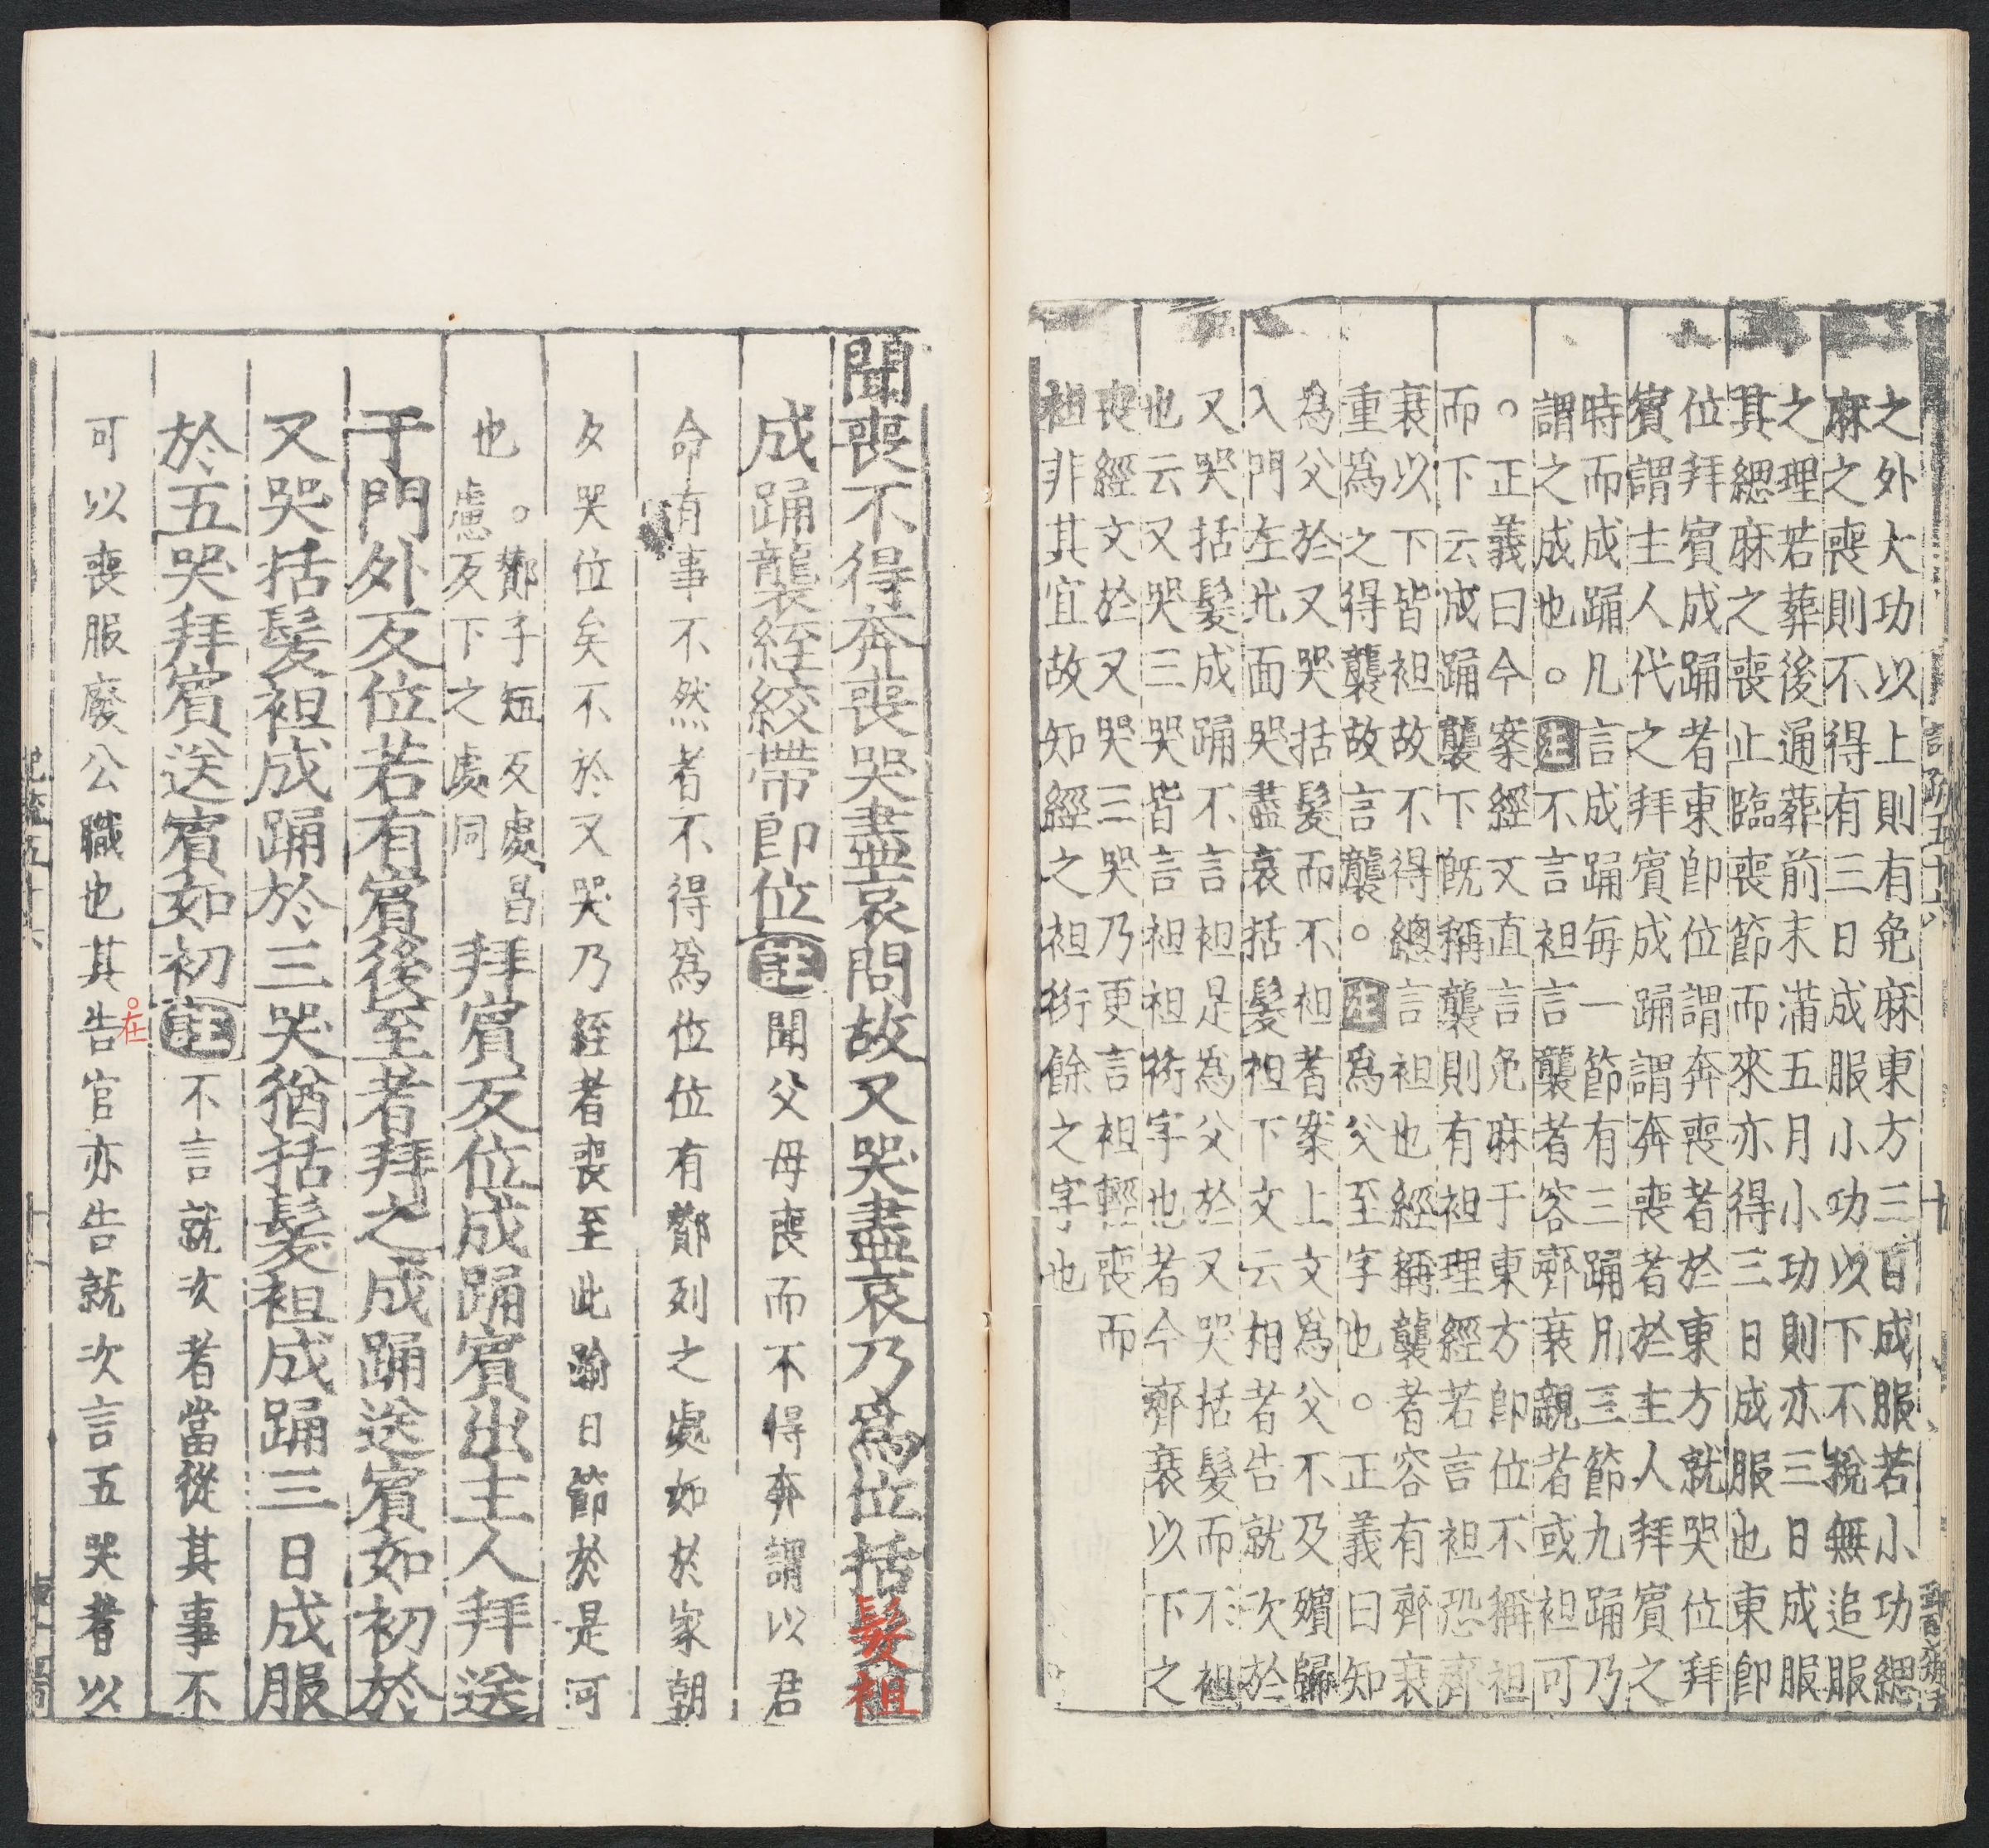 之外大功以上則有免麻東方三日成服若小功緦
麻之喪則不得有三日成服小功以下不稅無追服
之理若葬後通葬前未滿五月小功則亦三日成服
其緦麻之喪止臨喪節而來亦得三日成服也東即
位拜賓成踊者東即位謂奔喪者於東方就哭位拜
賓謂主人代之拜賓成踊謂奔喪者於主人拜賓之
時而成踊凡言成踊每一節有三踊凡三節九踊乃
謂之成也。注不言袒言襲者容齊衰親者或袒可
。正義曰今案經文直言免麻于東方即位不稱袒
而下云成踊襲下既稱襲則有袒理經若言袒恐齊
衰以下皆袒故不得總言袒也經稱襲者容有齊衰
重爲之得襲故言襲。注爲父至字也。正義曰知
爲父於又哭括髮而不袒者案上文爲父不及殯歸
入門左北面哭盡哀括髮袒下文云相者告就次於
又哭括髮成踊不言袒是爲父於又哭括髮而不袒
也云又哭三哭皆言袒袒衍字也者今齊衰以下之
喪經文於又哭三哭乃更言袒輕喪而
袒非其宜故知經之袒衍餘之字也
記疏五十六
十
聞喪不得奔喪哭盡哀問故又哭盡哀乃爲位括髮袒
成踊襲絰絞帶即位註聞父母喪而不得奔謂以君
命有事不然者不得爲位位有酇列之處如於家朝
夕哭位矣不於又哭乃絰者喪至此踰日節於是可
也。酇子短反處昌
慮反下之處同
拜賓反位成踊賓出主人拜送
于門外反位若有賓後至者拜之成踊送賓如初於
又哭括髮袒成踊於三哭猶括髮袒成踊三日成服
於五哭拜賓送賓如初註不言就次者當從其事不
可以喪服廢公職也其告官亦告就次言五哭者以
在
記疏五十六